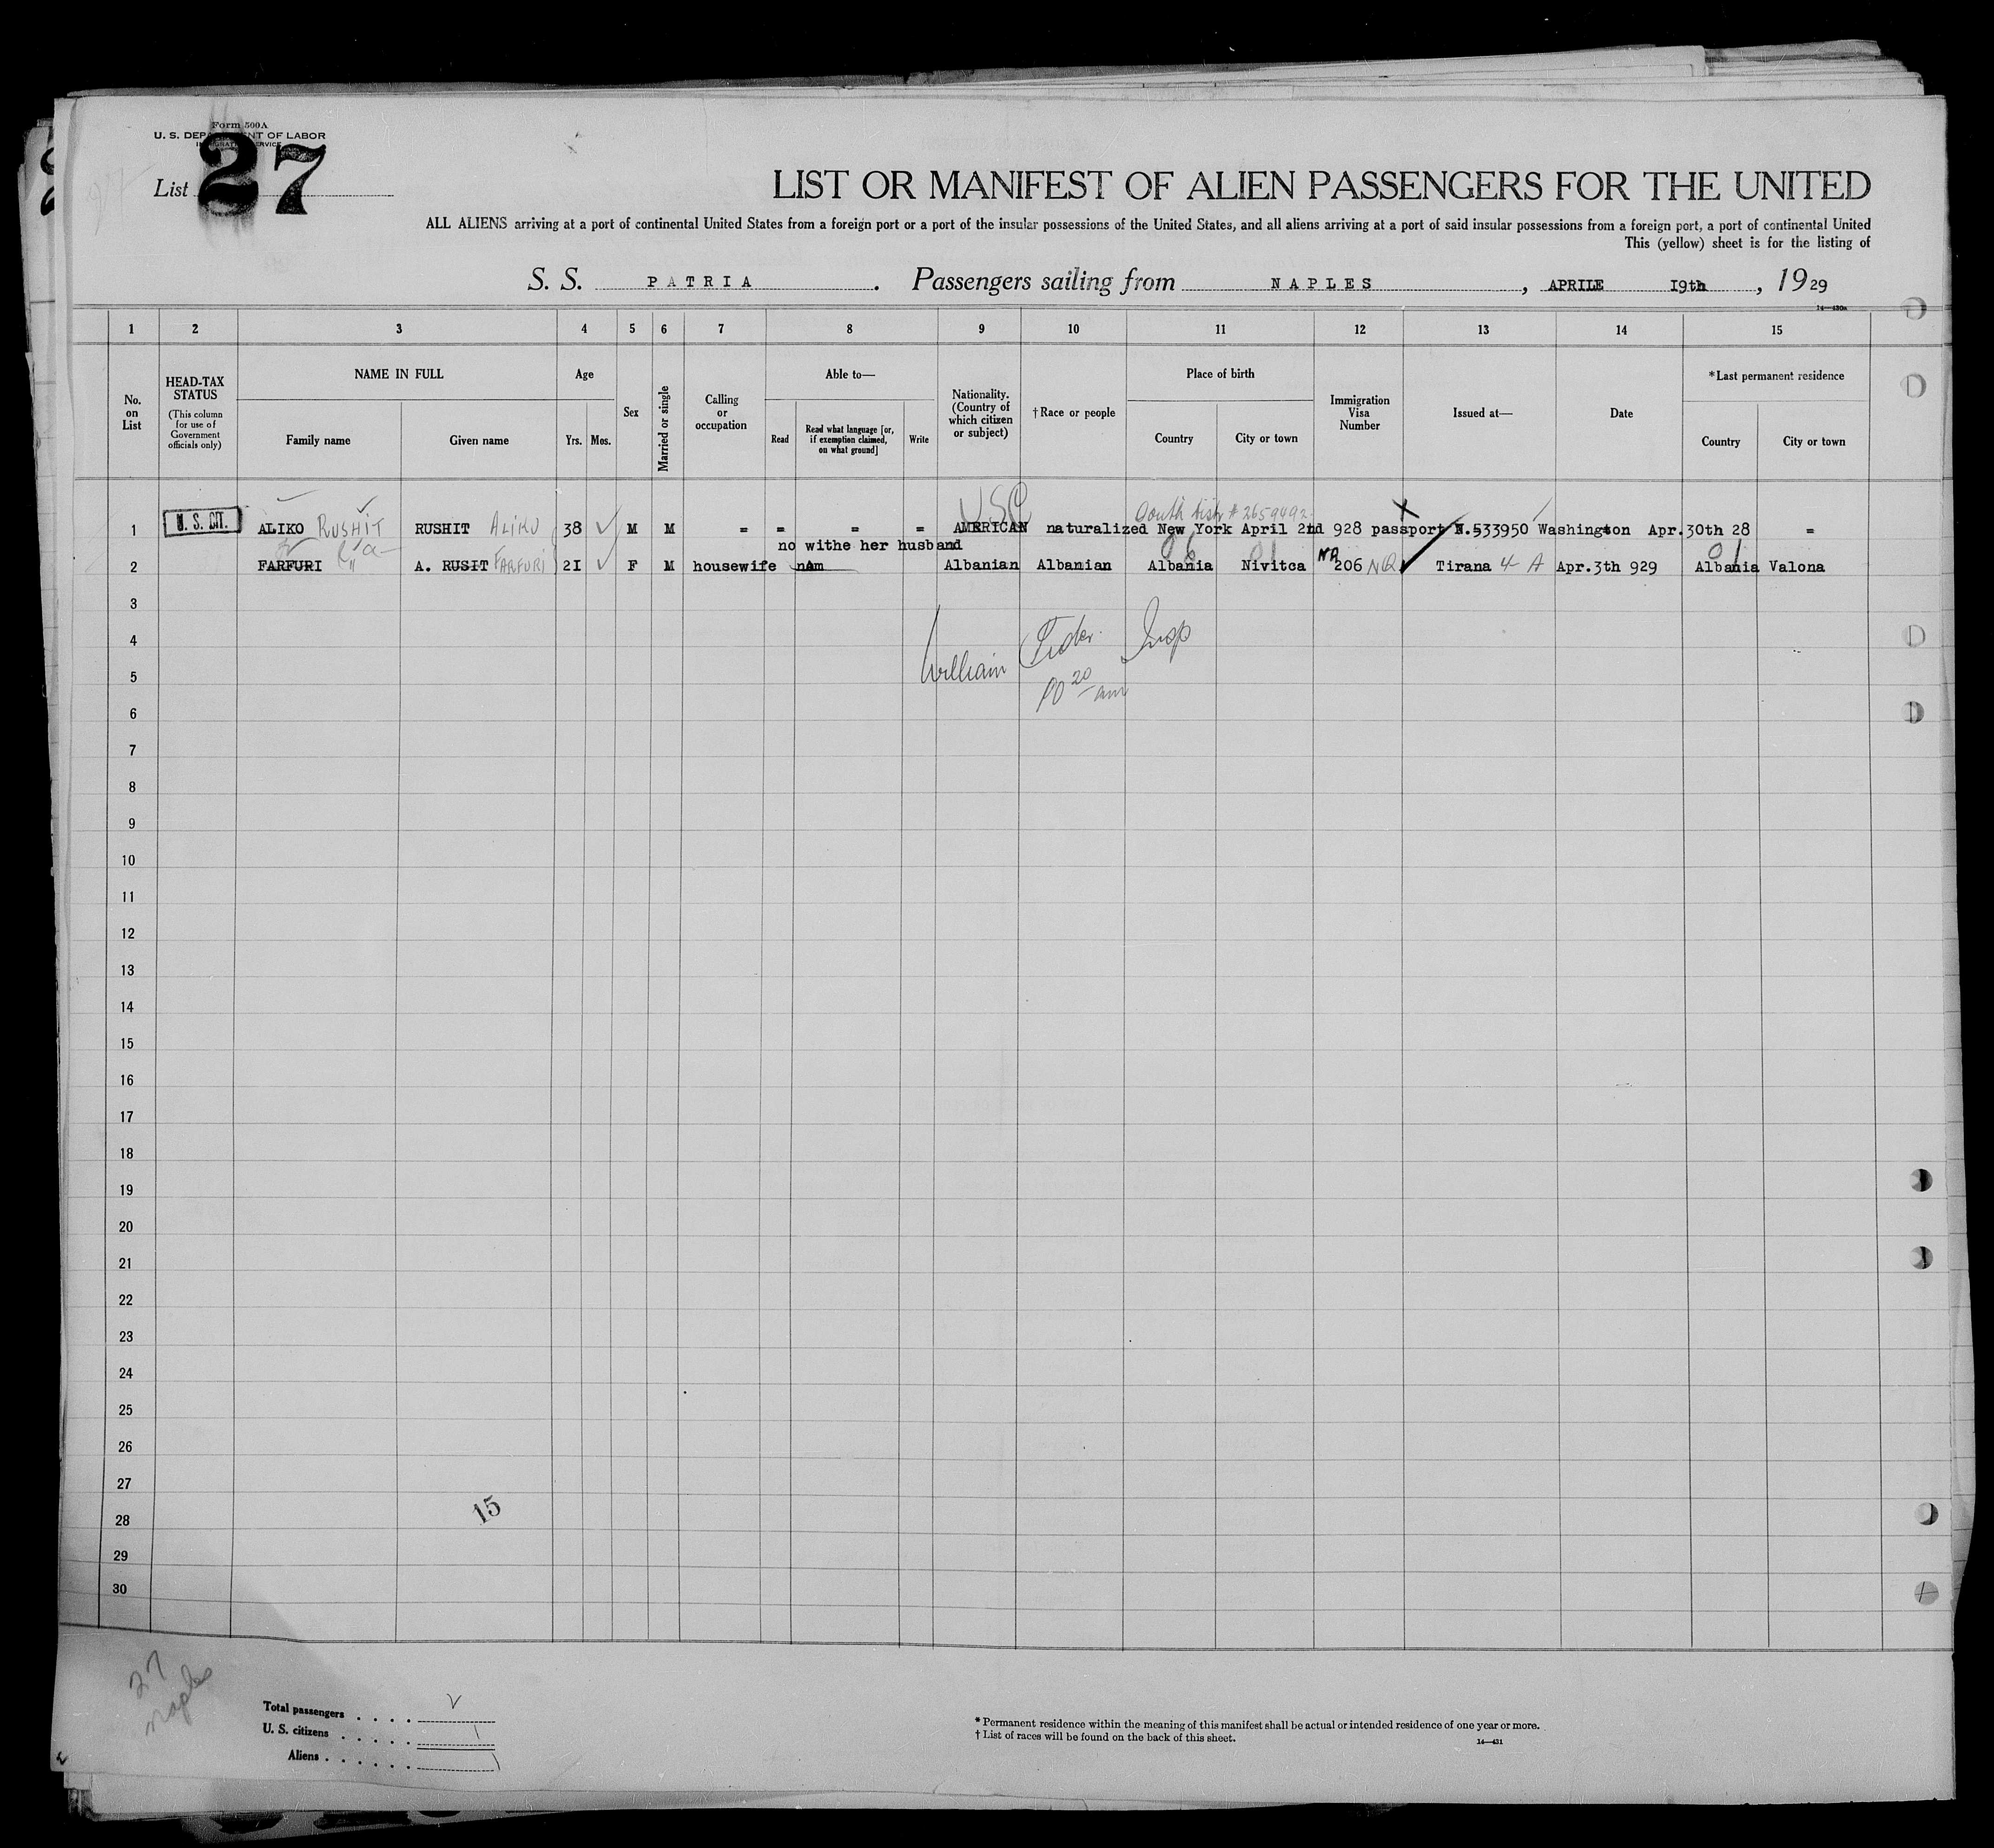 Form 500A
U. S. DEPARTMENT OF LABOR
IMMIGRATION SERVICE
List 27
LIST OR MANIFEST OF ALIEN PASSENGERS FOR THE UNITED
ALL ALIENS arriving at a port of continental United States from a foreign port or a port of the insular possessions of the United States, and all aliens arriving at a port of said insular possessions from a foreign port, a port of continental United
This (yellow) sheet is for the listing of
S. S. PATRIA. Passengers sailing from NAPLES, APRILE 19th, 1929
14—430a
1 2 3 4 5 6 7 8 9 10 11 12 13 14 15
No. on List
HEAD-TAX STATUS
(This column for use of Government officials only)
NAME IN FULL
Family name
Given name
Age
Yrs.
Mos.
Sex
Married or single
Calling or occupation
Able to—
Read
Read what language [or, if exemption claimed, on what ground]
Write
Nationality. (Country of which citizen or subject)
†Race or people
Place of birth
Country
City or town
Immigration Visa Number
Issued at—
Date
*Last permanent residence
Country
City or town
USC South Distr # 2659492
1 U. S. CIT. ALIKO RUSHIT RUSHIT ALIKO 38 M M = = = = AMERICAN naturalized New York April 2nd 928 passport N.533950 Washington Apr.30th 28 =
no withe her husband
2 FARFURI A. RUSIT FARFURI 2I F M housewife Albanian Albanian Albania Nivitca NQ 206 NQ Tirana 4 A Apr.3th 929 Albania Valona
3
4
William Insp
5
10 20 am
6
7
8
9
10
11
12
13
14
15
16
17
18
19
20
21
22
23
24
25
26
27
28
15
29
30
27
Naples
Total passengers
U. S. citizens 1
Aliens 1
* Permanent residence within the meaning of this manifest shall be actual or intended residence of one year or more.
† List of races will be found on the back of this sheet.
14—431